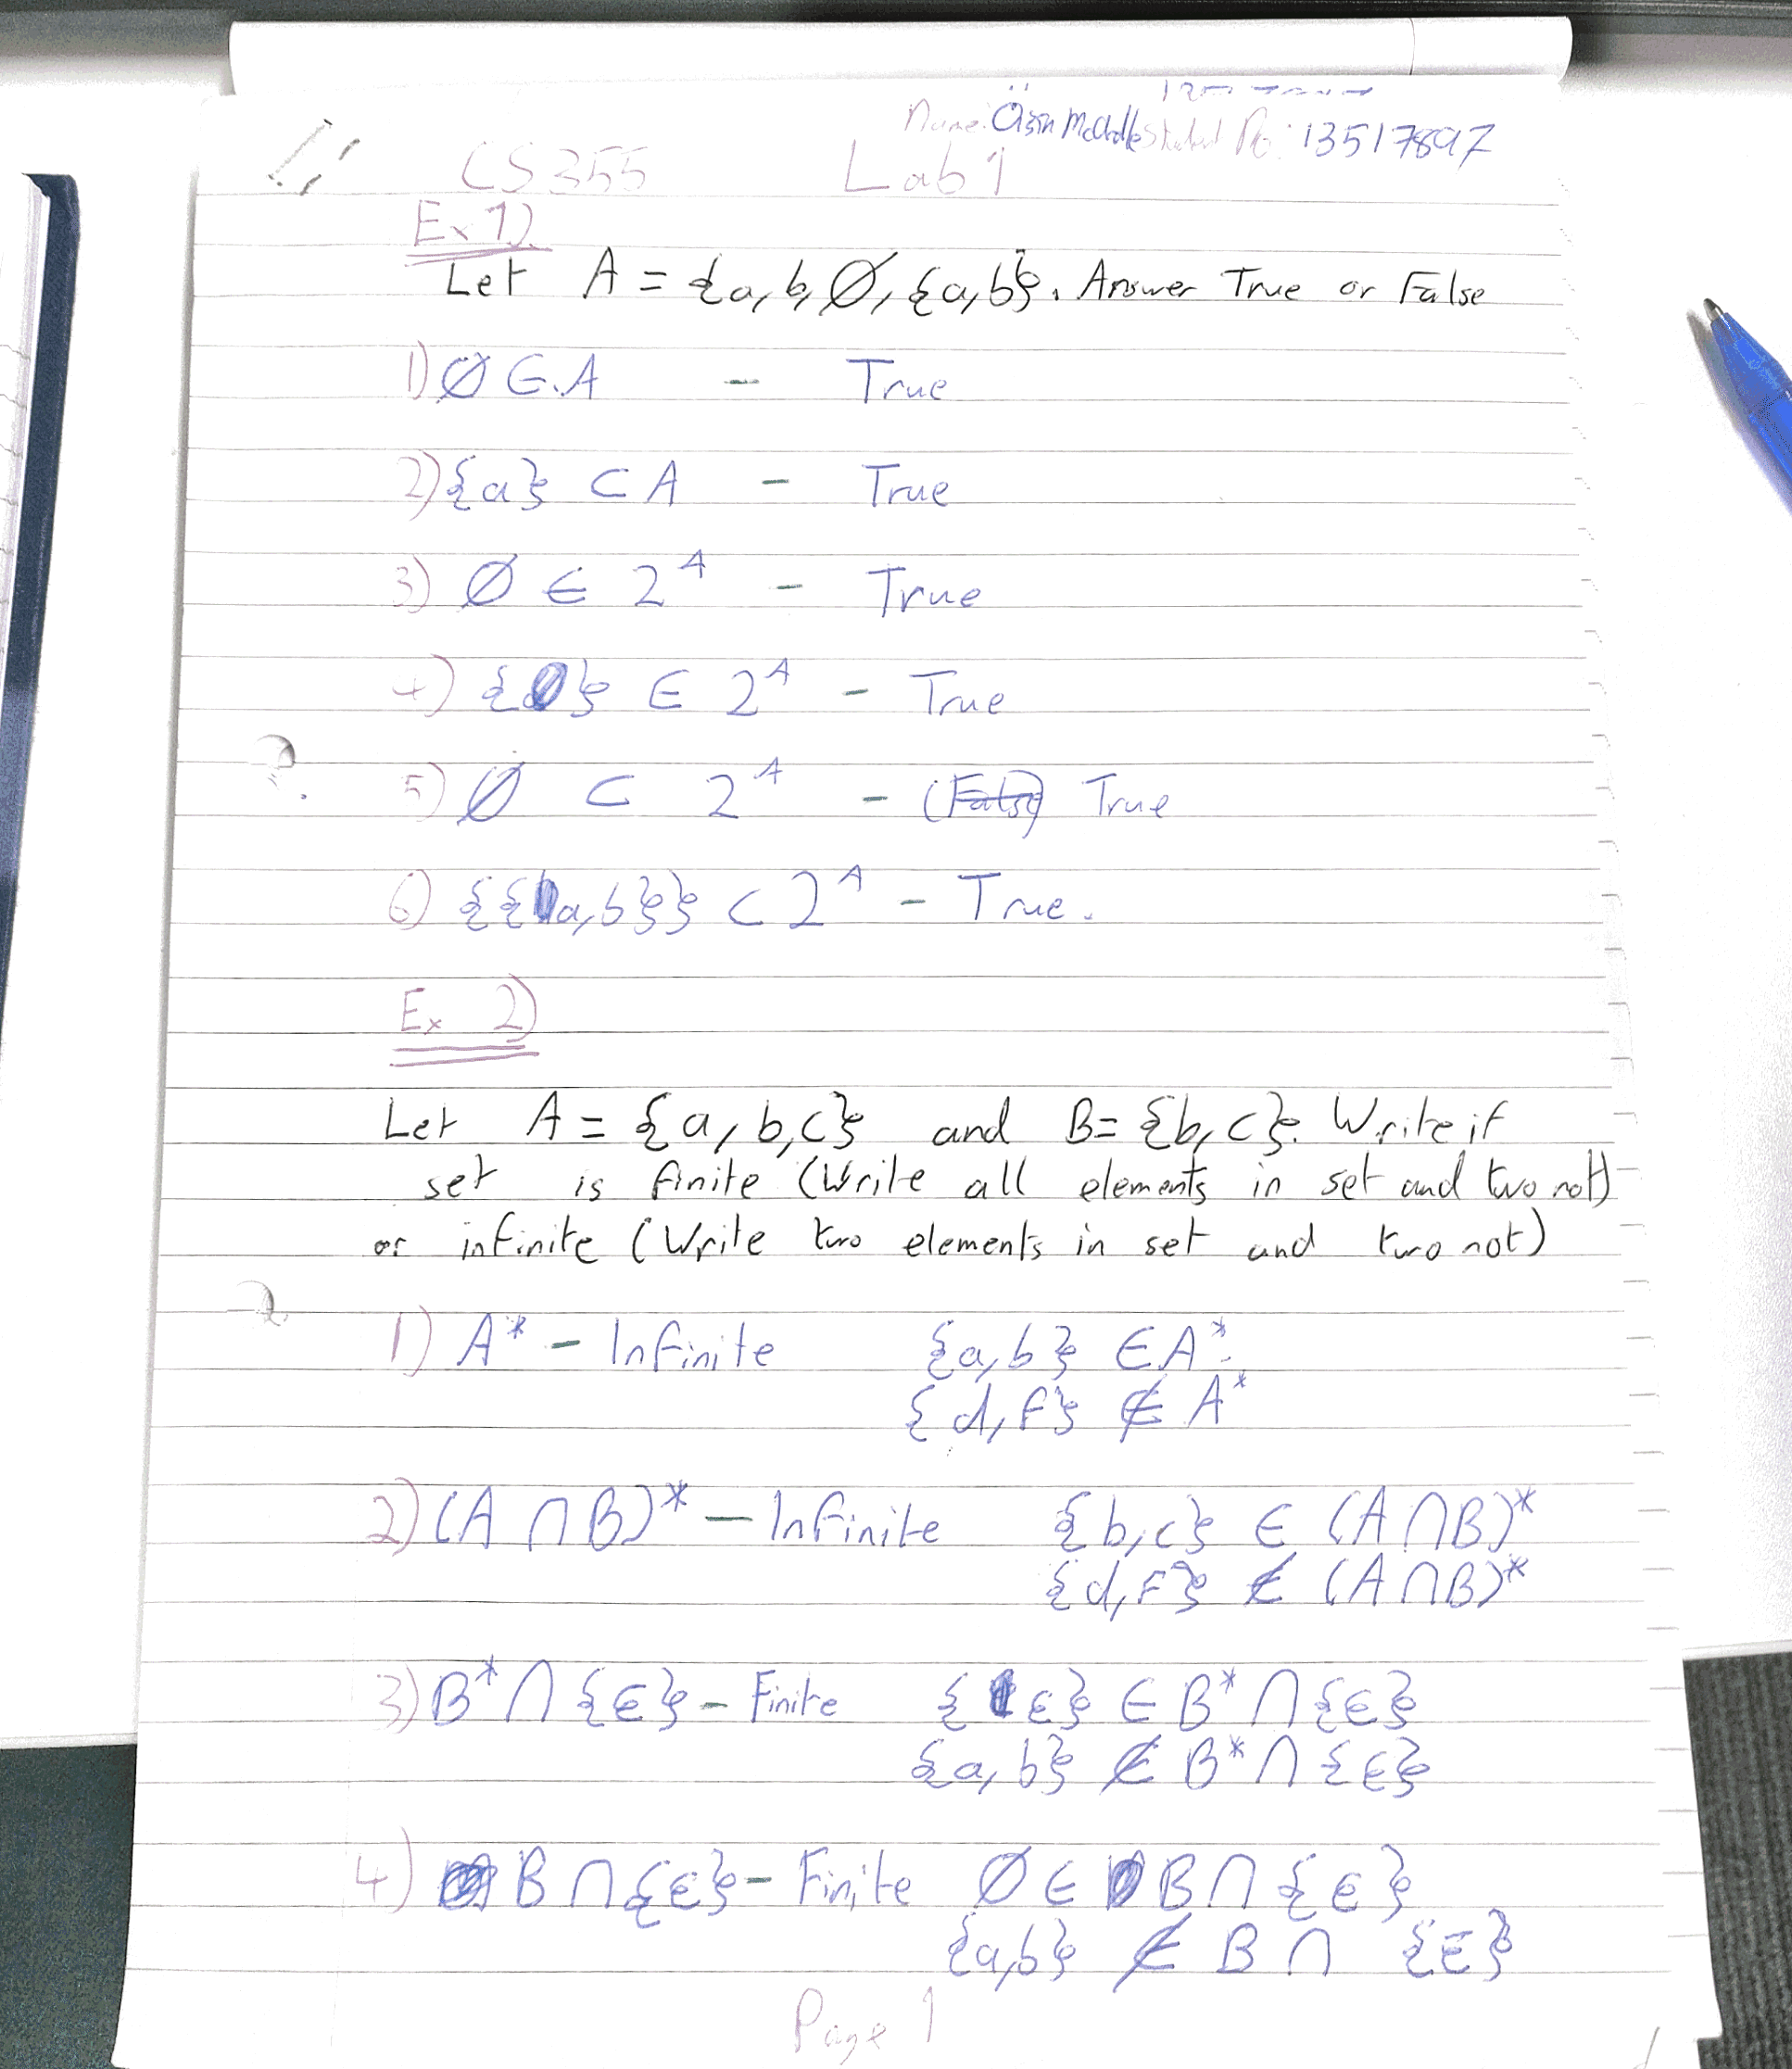 Name: Oisin Student No: 13517897
CS355 Lab 1
Ex 1)
Let A = {a, b, Ø, {a, b}. Answer True or False
1) Ø ∈ A - True
2) {a} ⊂ A - True
3) Ø ∈ 2^A - True
4) {Ø} ∈ 2^A - True
5) Ø ⊂ 2^A - (False) True
6) {{a, b}} ⊂ 2^A - True.
Ex 2)
Let A = {a, b, c} and B = {b, c}. Write if
set is finite (Write all elements in set and two not)
or infinite (Write two elements in set and two not)
1) A* - Infinite {a, b} ∈ A*.
{d, F} ∉ A*
2) (A ∩ B)* - Infinite {b, c} ∈ (A ∩ B)*
{d, F} ∉ (A ∩ B)*
3) B* ∩ {ε} - Finite {ε} ∈ B* ∩ {ε}
{a, b} ∉ B* ∩ {ε}
4) B ∩ {ε} - Finite Ø ∈ B ∩ {ε}
{a, b} ∉ B ∩ {ε}
Page 1